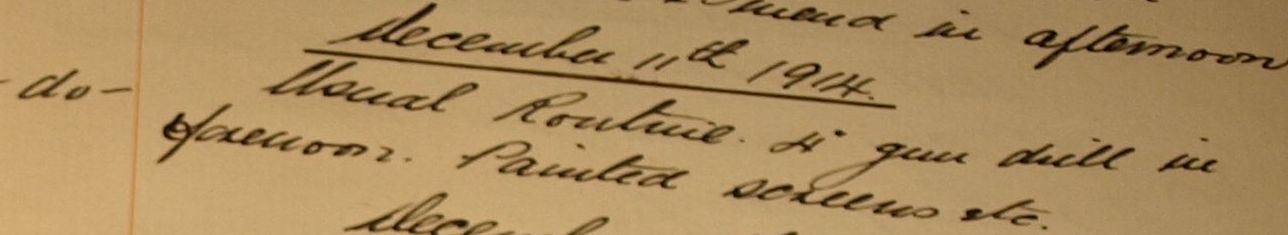 mend in afternoon
December 11th 1914.
- do -
Usual Routine. 4" gun drill in
forenoon. Painted screens etc.